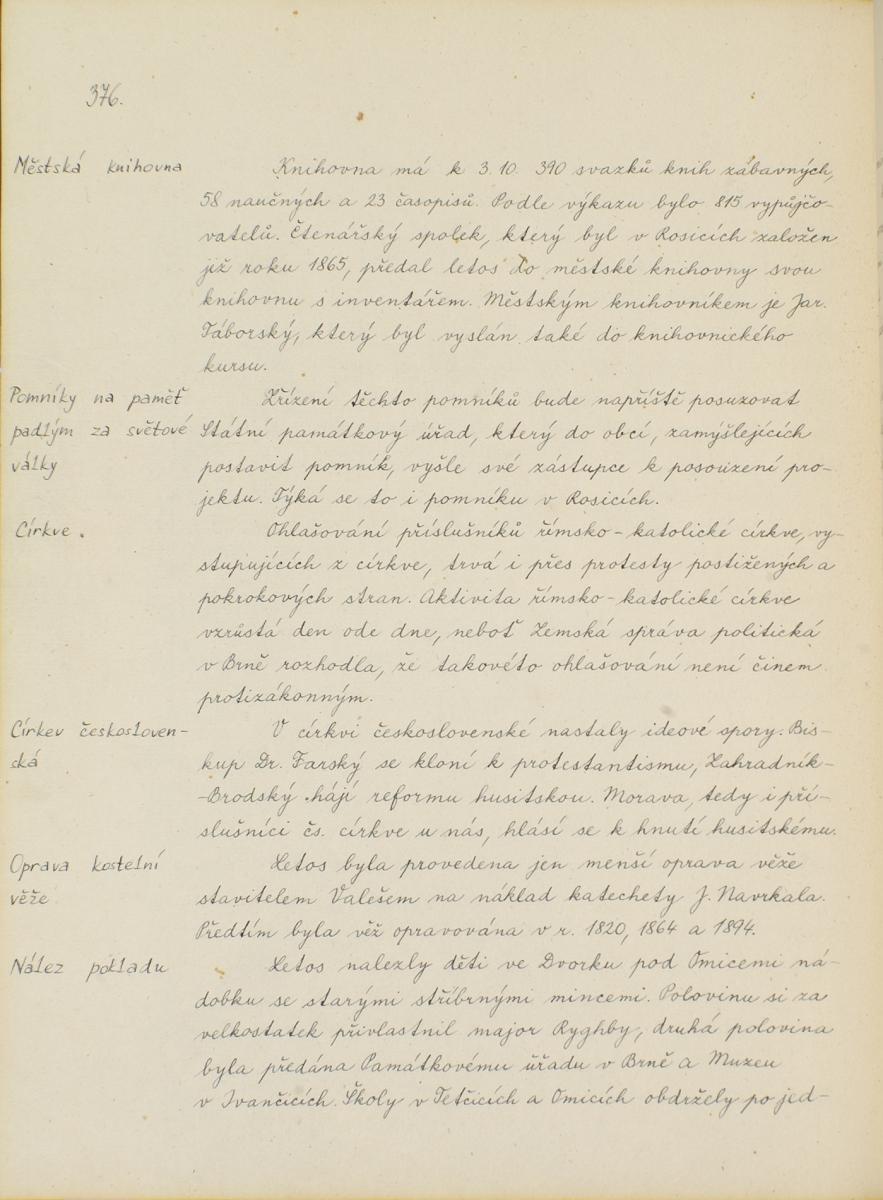 376.
Městská knihovna
Knihovna má k 3. 10. 390 svazků knih zábavných,
58 naučných a 23 časopisů. Podle výkazu bylo 815 vypůjčo-
vatelů. Čtenářský spolek, který byl v Rosicích založen
již roku 1865, předal letos do městské knihovny svou
knihovnu s inventářem. Městským knihovníkem je Jar.
Táborský, který byl vyslán také do knihovnického
kursu.
Pomníky na paměť
padlým za světové
války
Zřízení těchto pomníků bude napříště posuzovat
Státní památkový úřad, který do obcí, zamýšlejících
postavit pomník, vyšle své zástupce k posouzení pro-
jektu. Týká se to i pomníku v Rosicích.
Církve.
Ohlašování příslušníků římsko-katolické církve, vy-
stupujících z církve, trvá i přes protesty postižených a
pokrokových stran. Aktivita římsko-katolické církve
vzrůstá den ode dne, neboť Zemská správa politická
v Brně rozhodla, že takovéto ohlašování není činem
protizákonným.
Církev českosloven-
ská
V církvi československé nastaly ideové spory. Bis-
kup Dr. Farský se kloní k protestantismu, Zahradník-
-Brodský hájí reformu husitskou. Morava, tedy i pří-
slušníci čs. církve u nás, hlásí se k hnutí husitskému.
Oprava kostelní
věže
Letos byla provedena jen menší oprava věže
stavitelem Valešem na náklad katechety J. Navrkala.
Předtím byla věž opravována v r. 1820, 1864 a 1894.
Nález pokladu
Letos nalezly děti ve Dvorku pod Omicemi ná-
dobku se starými stříbrnými mincemi. Polovinu si za
velkostatek přivlastnil major Ryghby, druhá polovina
byla předána Památkovému úřadu v Brně a Muzeu
v Ivančicích. Školy v Tetčicích a Omicích obdržely po jed-